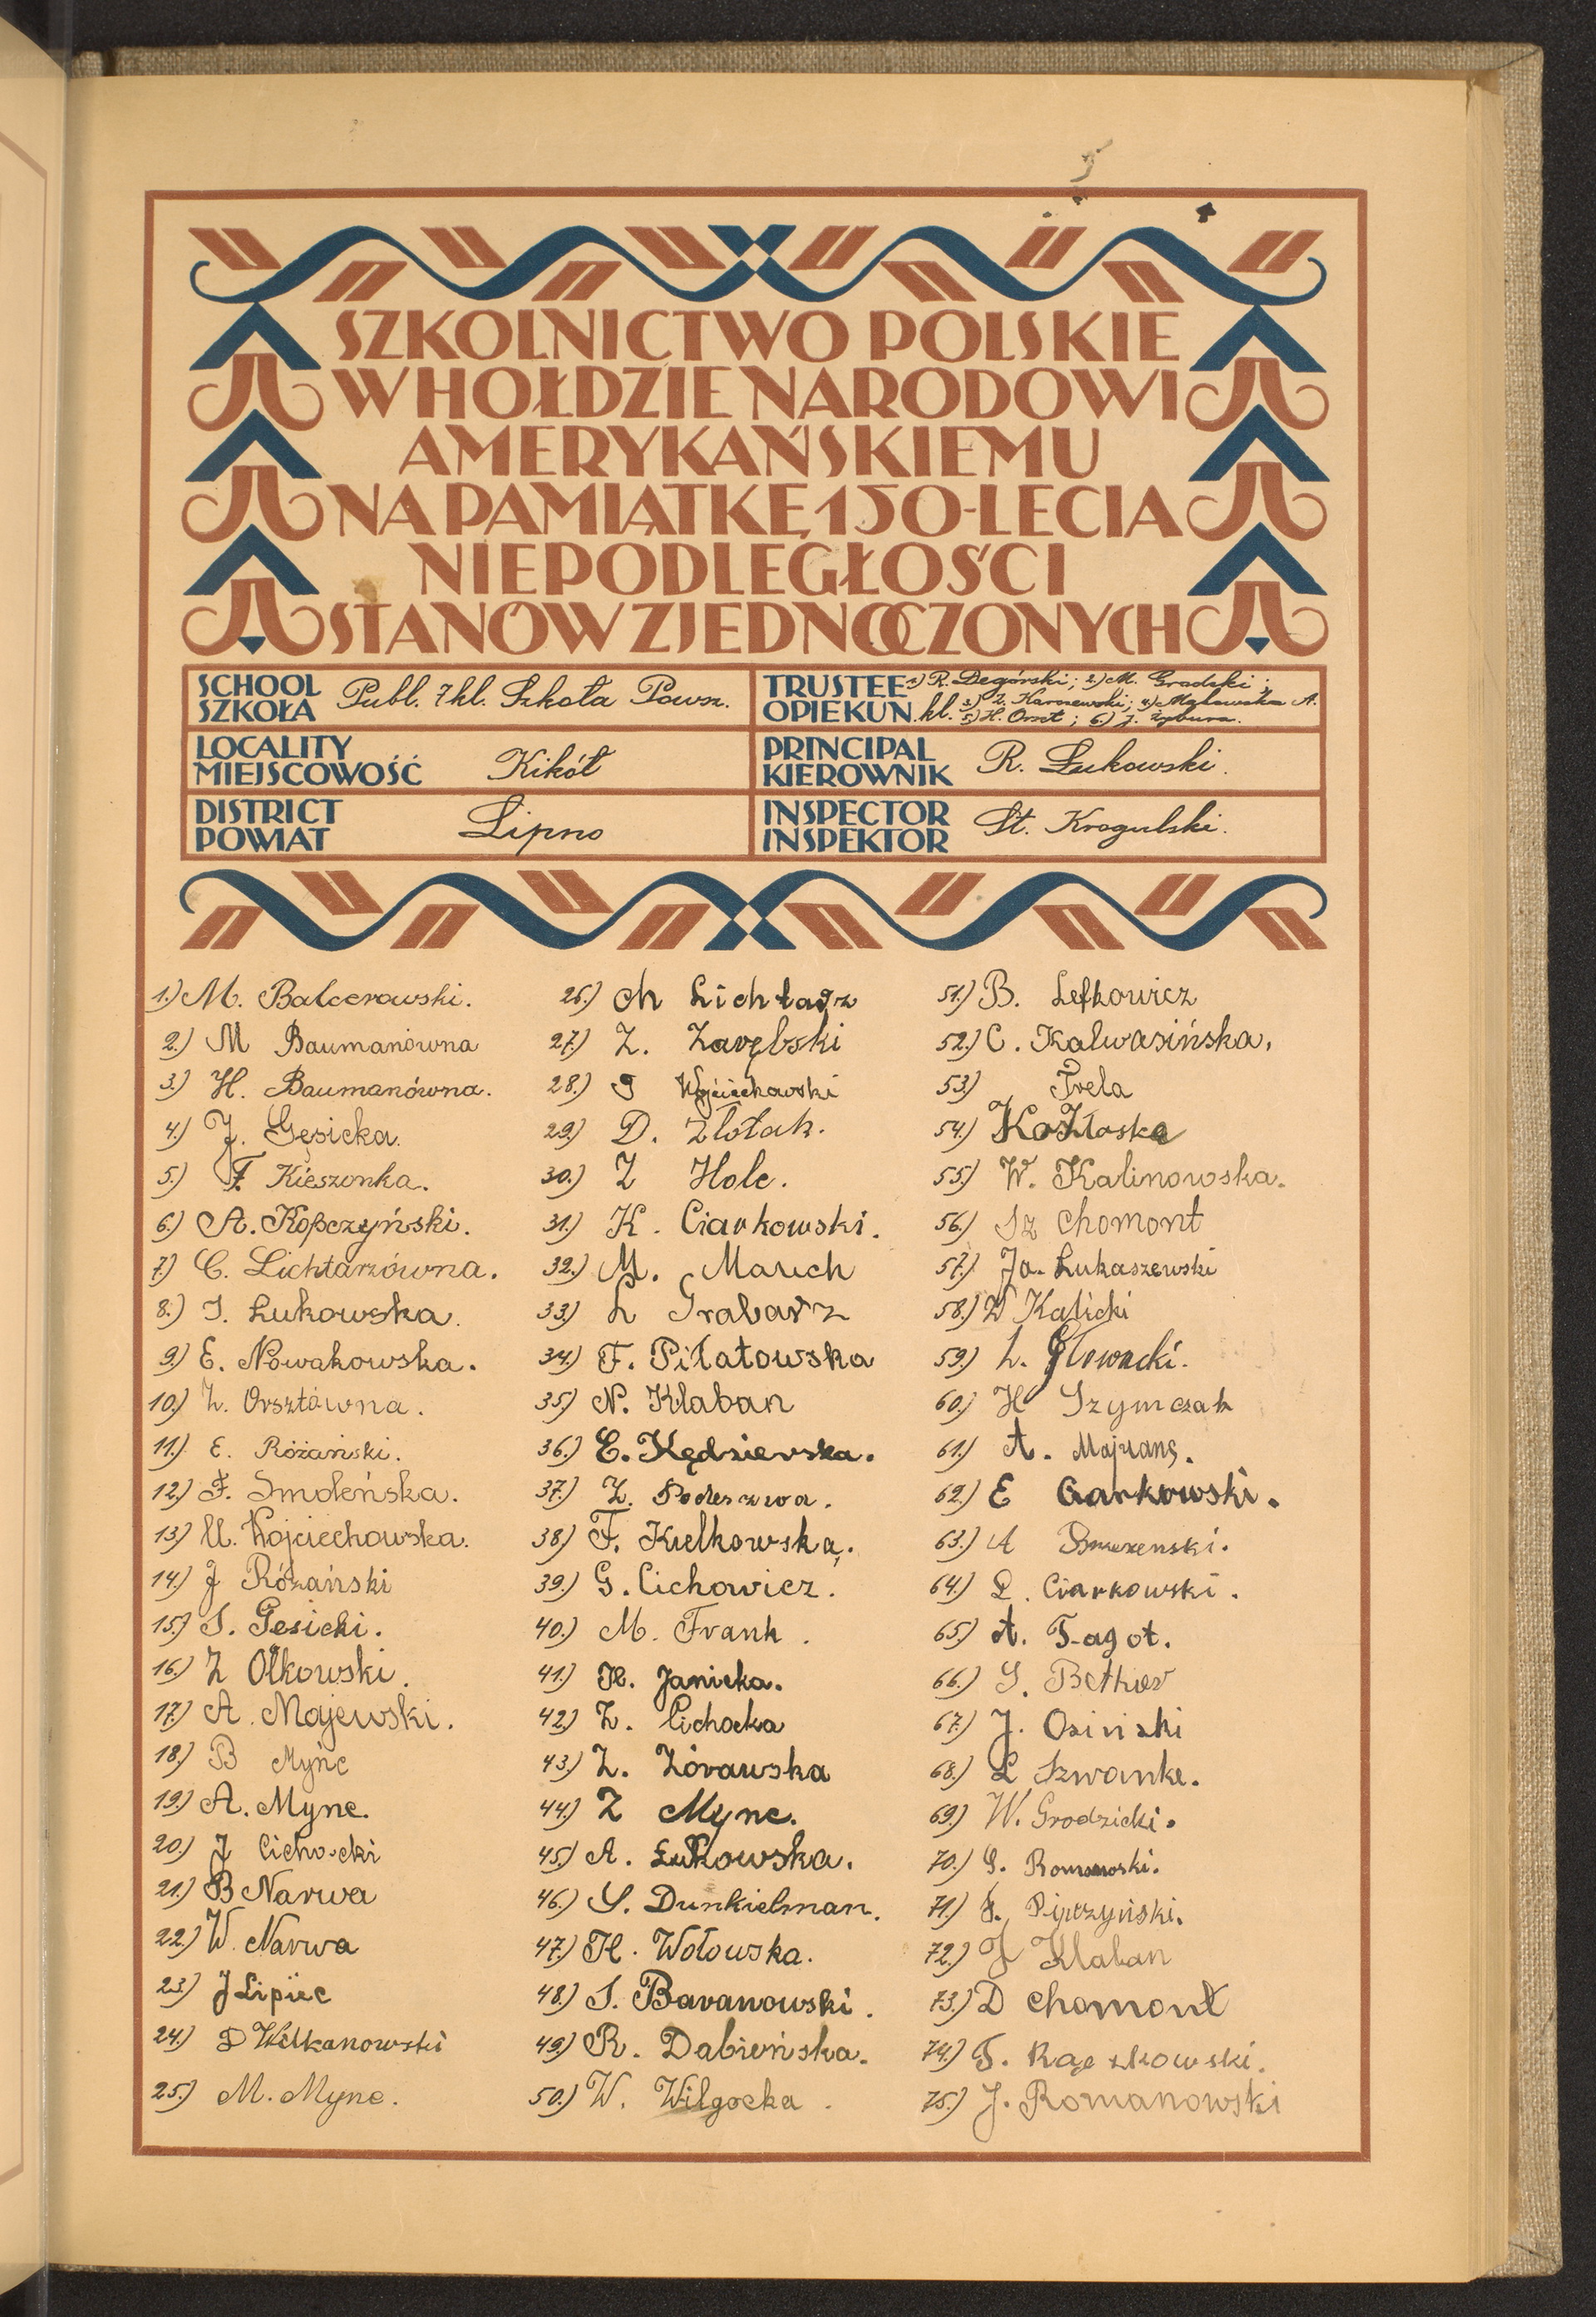 SZKOLNICTWO POLSKIE
W HOŁDZIE NARODOWI
AMERYKAŃSKIEMU
NA PAMIĄTKĘ 150-LECIA
NIEPODLEGŁOŚCI
STANÓW ZJEDNOCZONYCH
SCHOOL
SZKOŁA
Publ. 7 kl. Szkoła Powsz.
TRUSTEE
OPIEKUN
kl.
1) R. Degórski; 2) M. Gradzki;
3) Z. Karszewski; 4) Makowska A.
5) H. Orszt; 6) J. Żybura.
LOCALITY
MIEJSCOWOŚĆ
Kikół
PRINCIPAL
KIEROWNIK
R. Łukowski.
DISTRICT
POWIAT
Lipno
INSPECTOR
INSPEKTOR
St. Krogulski.
1.) M. Balcerowski.
2.) M Baumanówna
3.) H. Baumanówna.
4.) J. Gęsicka.
5.) F. Kieszonka.
6.) A. Kopczyński.
7.) C. Lichtarzówna.
8.) I. Łukowska.
9.) E. Nowakowska.
10.) Z. Orsztówna.
11.) E. Różański.
12.) F. Smoleńska.
13.) U. Wojciechowska.
14.) J Różański
15.) S. Gesicki.
16.) Z Olkowski.
17.) A. Majewski.
18.) B Mync
19.) A. Mync.
20.) J Cichocki
21.) B Narwa
22.) W. Narwa
23.) J Lipiec
24.) D Welkanowski
25.) M. Mync.
26.) Ch Lichtarz
27.) Z. Zarębski
28.) J Wojciechowski
29.) D. Złotak.
30.) Z Holc.
31.) K. Ciarkowski.
32.) M. March
33.) L Grabarz
34.) F. Piłatowska
35.) N. Klaban
36.) E. Kędzierska.
37.) Z. Podeszwa.
38.) F. Kielkowska.
39.) G. Cichowicz.
40.) M. Frank.
41.) H. Janicka.
42.) Z. Cichocka
43.) Z. Żórawska
44.) Z Mync.
45.) A. Łukowska.
46.) S. Dunkielman.
47.) H. Wołowska.
48.) S. Baranowski.
49.) R. Dabieńska.
50.) W. Wilgocka.
51.) B. Lefkowicz
52.) C. Kalwasińska.
53.) Trela
54.) Kozłoska
55.) W. Kalinowska.
56.) Sz Chomont
57.) Ja. Łukaszewski
58.) W Kalicki
59.) L. Głowacki.
60.) H Szymczak
61.) A.
62.) E Ciarkowski.
63.) A
64.) L. Ciarkowski.
65.) A. Fagot.
66.) S. Bether
67.) J. Osinski
68.) L Szwanke.
69.) W. Grodzicki.
70.) G. Romanoski.
71.) F. Pipczyński.
72.) J Klaban
73.) D Chomont
74.)
75.) J. Romanowski